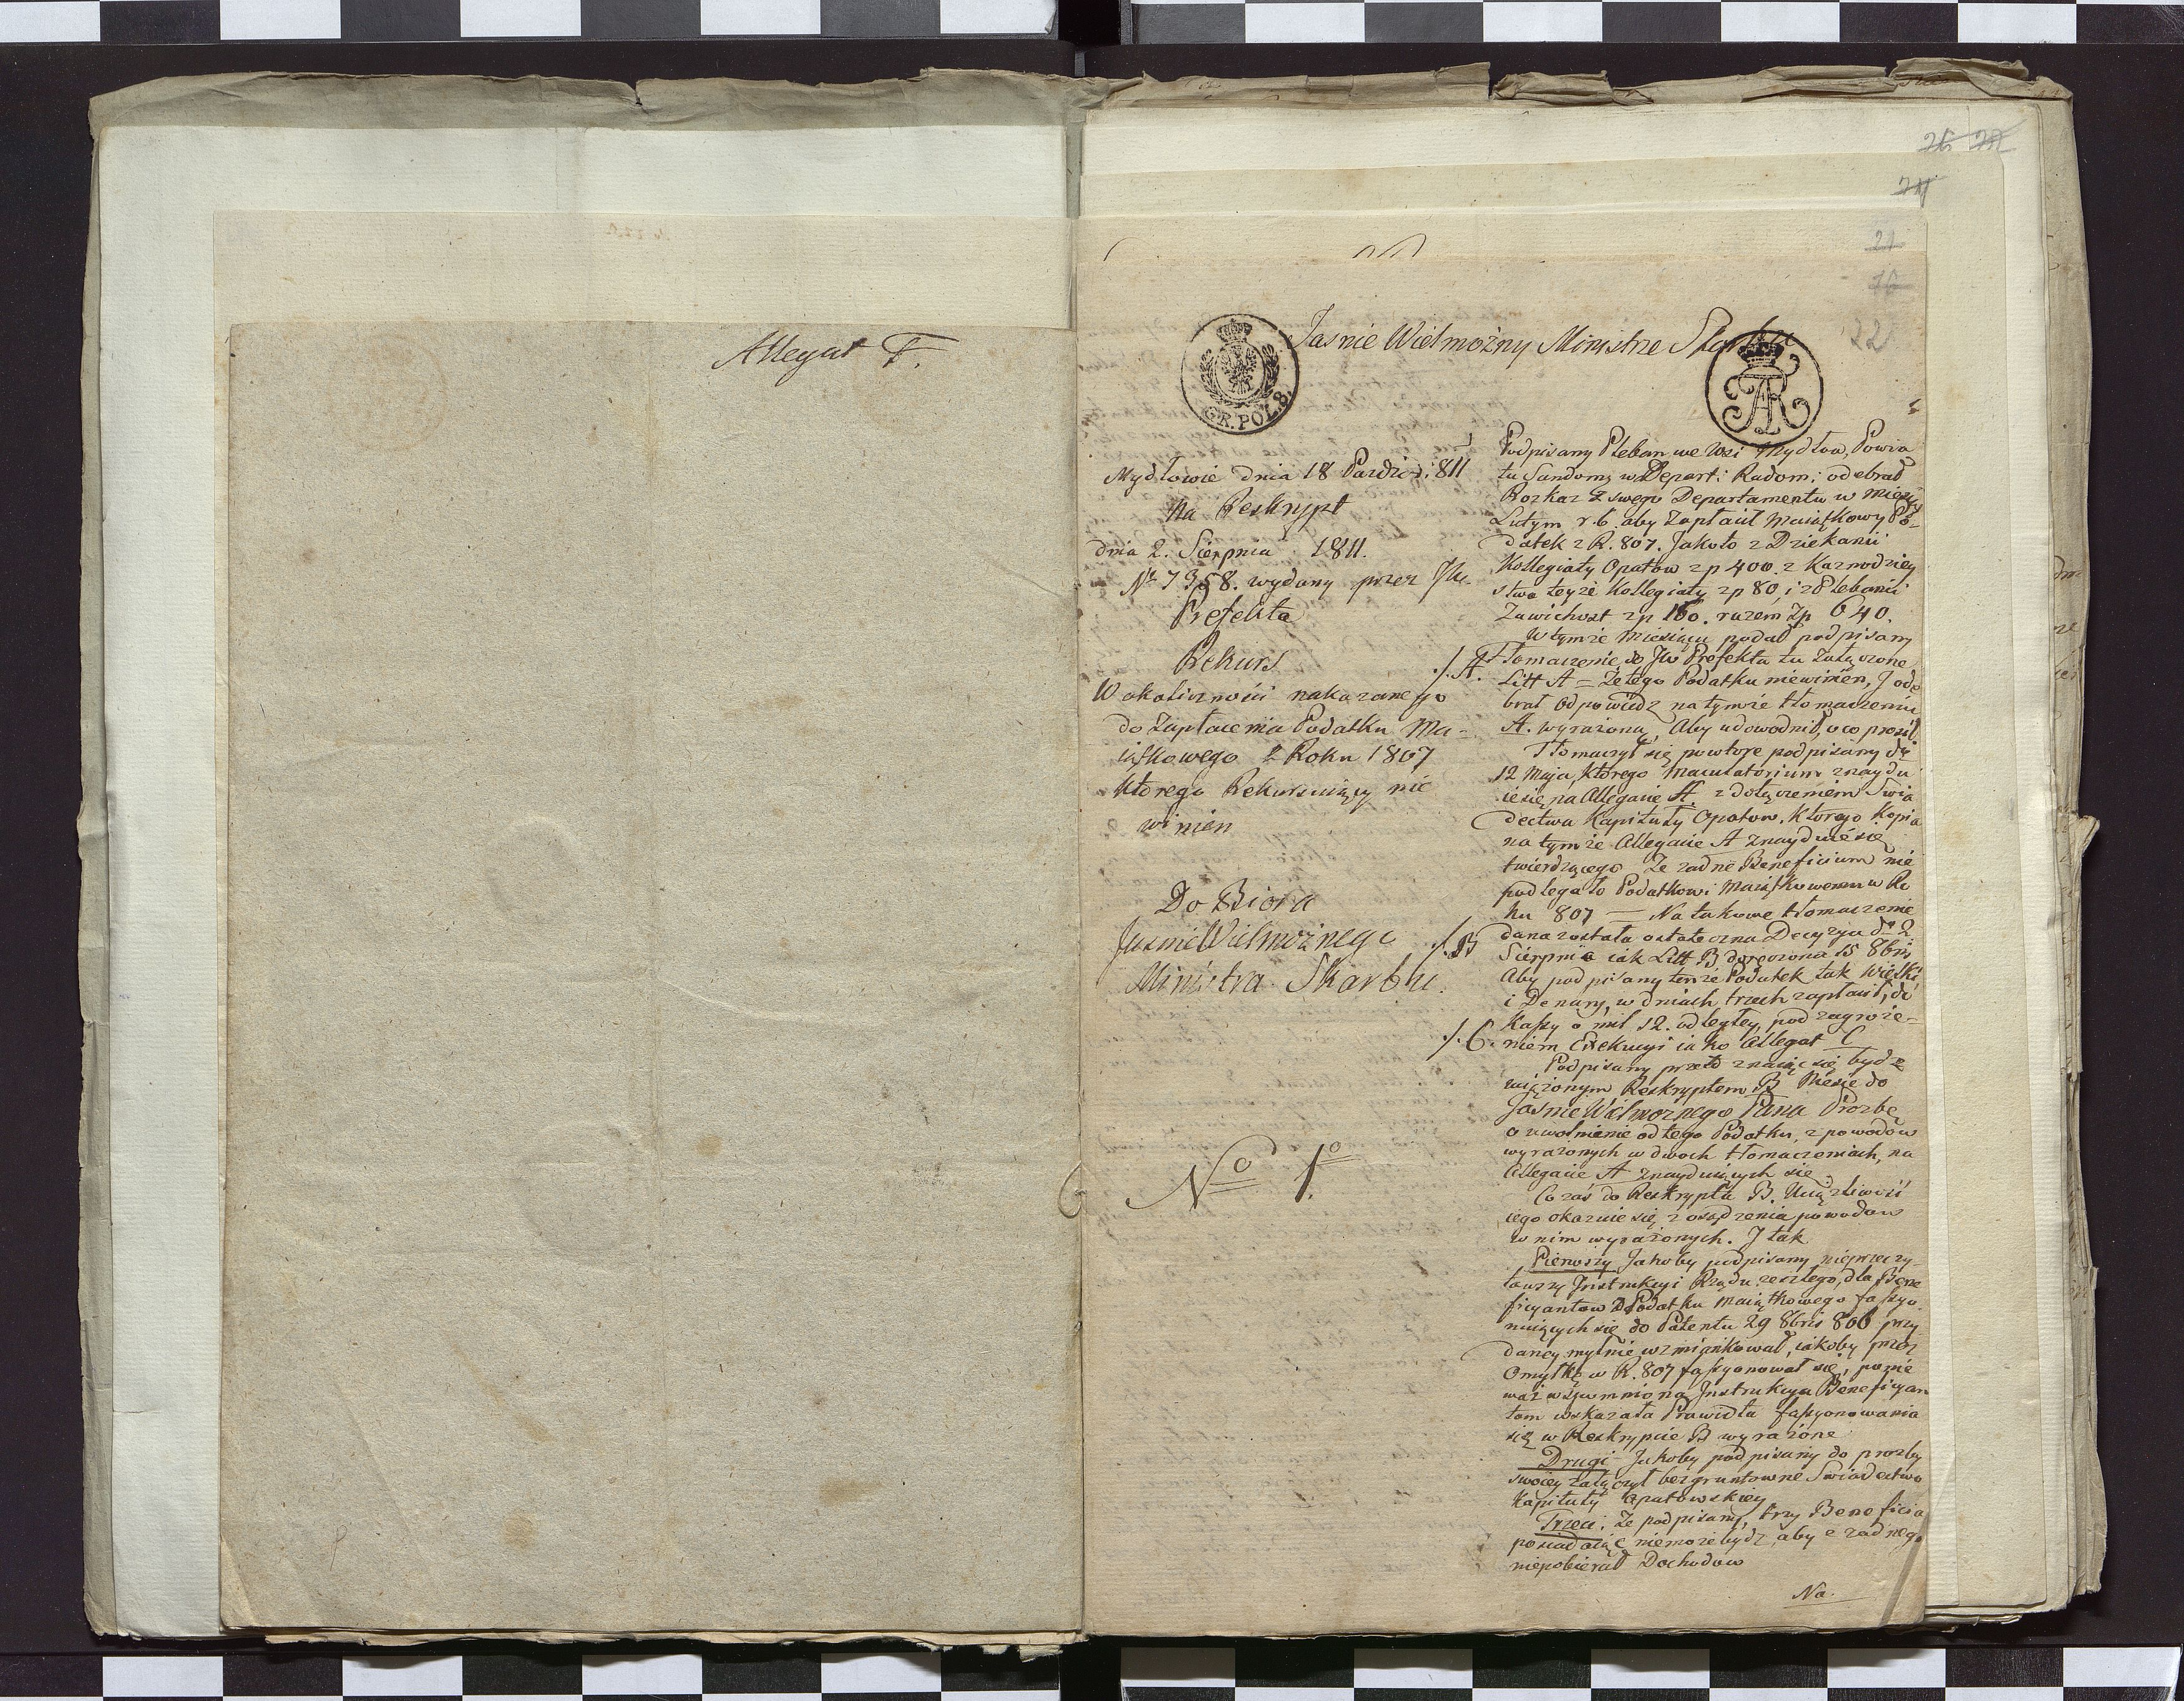 Allegat F.
26 28
24
21
16
22
Jasnie Wielmożny Ministrze Skarbu
GR. POL. 8.
Mydłowie dnia 18 Pazdzi: 811
Na Reskrypt
dnia 2. Sierpnia 1811.
No 7958. wydany przez JW.
Prefekta
Rekurs
W okoliczności nakazanego
do Zapłacenia Podatku Ma-
iątkowego z Roku 1807
Którego Rekursuiący nie
winien
Do Biora
Jasnie Wielmożnego
Ministra Skarbu.
No 1o
Podpisany Pleban we Wsi Mydłow, Powia
tu Sandom: w Depart: Radom: odebrał
Rozkaz z swego Departamentu w Miesią
Lutym r.b. aby zapłacił Maiątkowy Po-
datek z R. 807. Jakoto z Dziekanii
Kollegiaty Opatow zp 400. z Kaznodziey
stwa teyże Kollegiaty zp 80, i z Plebanii
Zawichost zp 160. razem Zp 640.
W tymże Miesiącu podał podpisany
./. A. Tłomaczenie do JW Prefekta tu załączone
Litt A = Że tego Podatku niewinien, J ode
brał odpowiedz na tymże tłomaczeniu
A. wyrażoną, Aby udowodnił, o co prosił.
Tłomaczył się powtore podpisany dn
12 Maja, którego Maculatorium znaydu
ie się na Allegacie A. z dołączeniem Swia
dectwa Kapituły Opatow. Którego Kopia
na tymże Allegacie A znayduie się
twierdzącego Że żadne Beneficium nie
podlegało Podatkowi Maiątkowemu w Ro
ku 807 — Na takowe tłomaczenie
./. B dana została ostateczna Decyzya dn 2
Sierpnia iak Litt B doręczona 15 8bris
Aby podpisany tenże Podatek tak Wielki
i Denary, w dniach trzech zapłacił, do
Kassy o mil 12. odległey, pod zagroże-
./. C. niem Exekucyi iako Allegat C
Podpisany przeto znaiąc się bydz
uciążonym Reskryptem B Niesie do
Jasnie Wielmożnego Pana Prozbę
o uwolnienie od tego Podatku, z powodow
wyrażonych w dwoch tłomaczeniach, na
Allegacie A znayduiących się
Co zaś do Reskryptu B. Uciążliwość
iego okazuie się z osądzenia powodow
w nim wyrażonych. J tak
Pierwszy Jakoby podpisany nieprzeczy
tawszy Jnstrukcyi Rządu zeszłego, dla Bene
ficyantow z Podatku Maiątkowego fassyo
nuiących się do Patentu 29 8bris 806 przy
daney mylnie wzmiankował, iakoby przez
Omyłkę w R. 807 fassyonował się, ponie
waż wspomniona Jnstrukcya Beneficyan
tom wskazała Prawidła fassyonowania
się w Reskrypcie B wyrażone
Drugi Jakoby podpisany do prozby
swoiey załączył bezgruntowne Swiadectwo
Kapituły Opatowskiey
Trzeci. Że podpisany, trzy Beneficia
posiadaiąc niemoże bydz, aby z żadnego
niepobierał Dochodow
Na